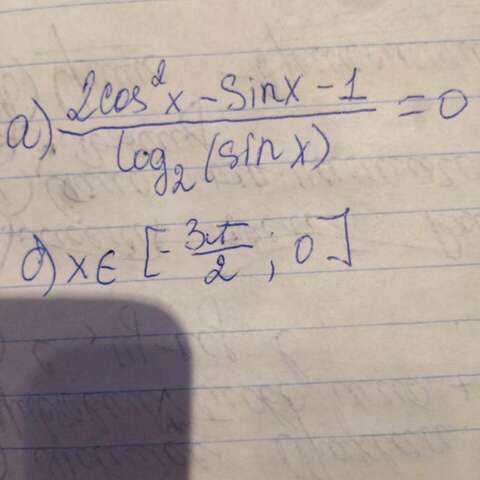 а) (2cos²x - sinx - 1) / (log₂(sin x)) = 0
б) x ∈ [-3π/2 ; 0]